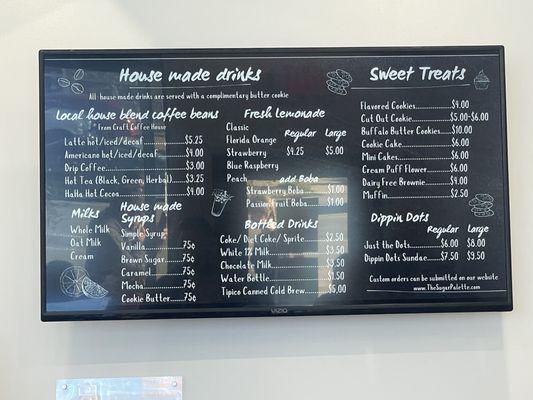 House made drinks
All house made drinks are served with a complimentary butter cookie
Local house blend coffee beans
* From Craft Coffee House
Latte hot/iced/decaf $5.25
Americano hot/iced/decaf $4.00
Drip Coffee $3.00
Hot Tea (Black, Green, Herbal) $3.25
HaHa Hot Cocoa $4.00
Milks
Whole Milk
Oat Milk
Cream
House made Syrups
Simple Syrup
Vanilla 75¢
Brown Sugar 75¢
Caramel 75¢
Mocha 75¢
Cookie Butter 75¢
Fresh Lemonade
Classic
Florida Orange
Regular Large
Strawberry $4.25 $5.00
Blue Raspberry
Peach
add Boba
Strawberry Boba $1.00
Passionfruit Boba $1.00
Bottled Drinks
Coke/ Diet Coke/ Sprite $2.50
White 1% Milk $3.50
Chocolate Milk $3.50
Water Bottle $1.50
Tipico Canned Cold Brew $5.00
Sweet Treats
Flavored Cookies $4.00
Cut Out Cookie $5.00-$6.00
Buffalo Butter Cookies $10.00
Cookie Cake $6.00
Mini Cakes $6.00
Cream Puff Flower $6.00
Dairy Free Brownie $4.00
Muffin $2.50
Dippin Dots
Regular Large
Just the Dots $6.00 $8.00
Dippin Dots Sundae $7.50 $9.50
Custom orders can be submitted on our website
www.TheSugarPalette.com
VIZIO